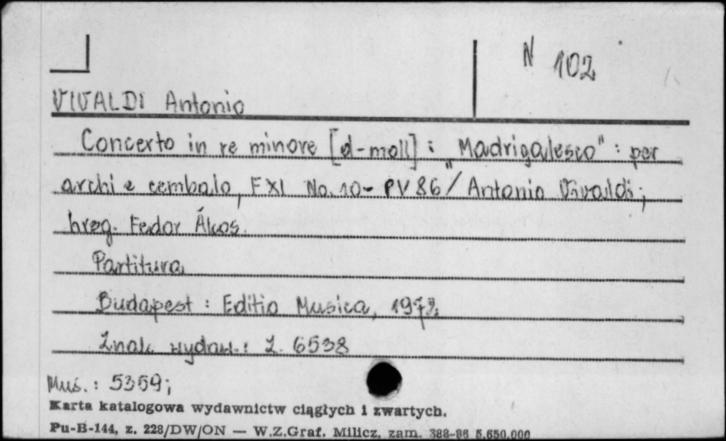 N 102
VIVALDI Antonio
Concerto in re minore [d-moll] : "Madrigalesco" : per
archi e cembalo, F XI No. 10 - PV 86 / Antonio Vivaldi ;
hreg. Fedor Ákos.
Partitura
Budapest : Editio Musica, 1972.
Znak wydaw. : Z. 6538
Mus. : 5359;
Karta katalogowa wydawnictw ciągłych i zwartych.
Pu-B-144, z. 228/DW/ON — W.Z.Graf. Milicz, zam. 388-86 5.650.000